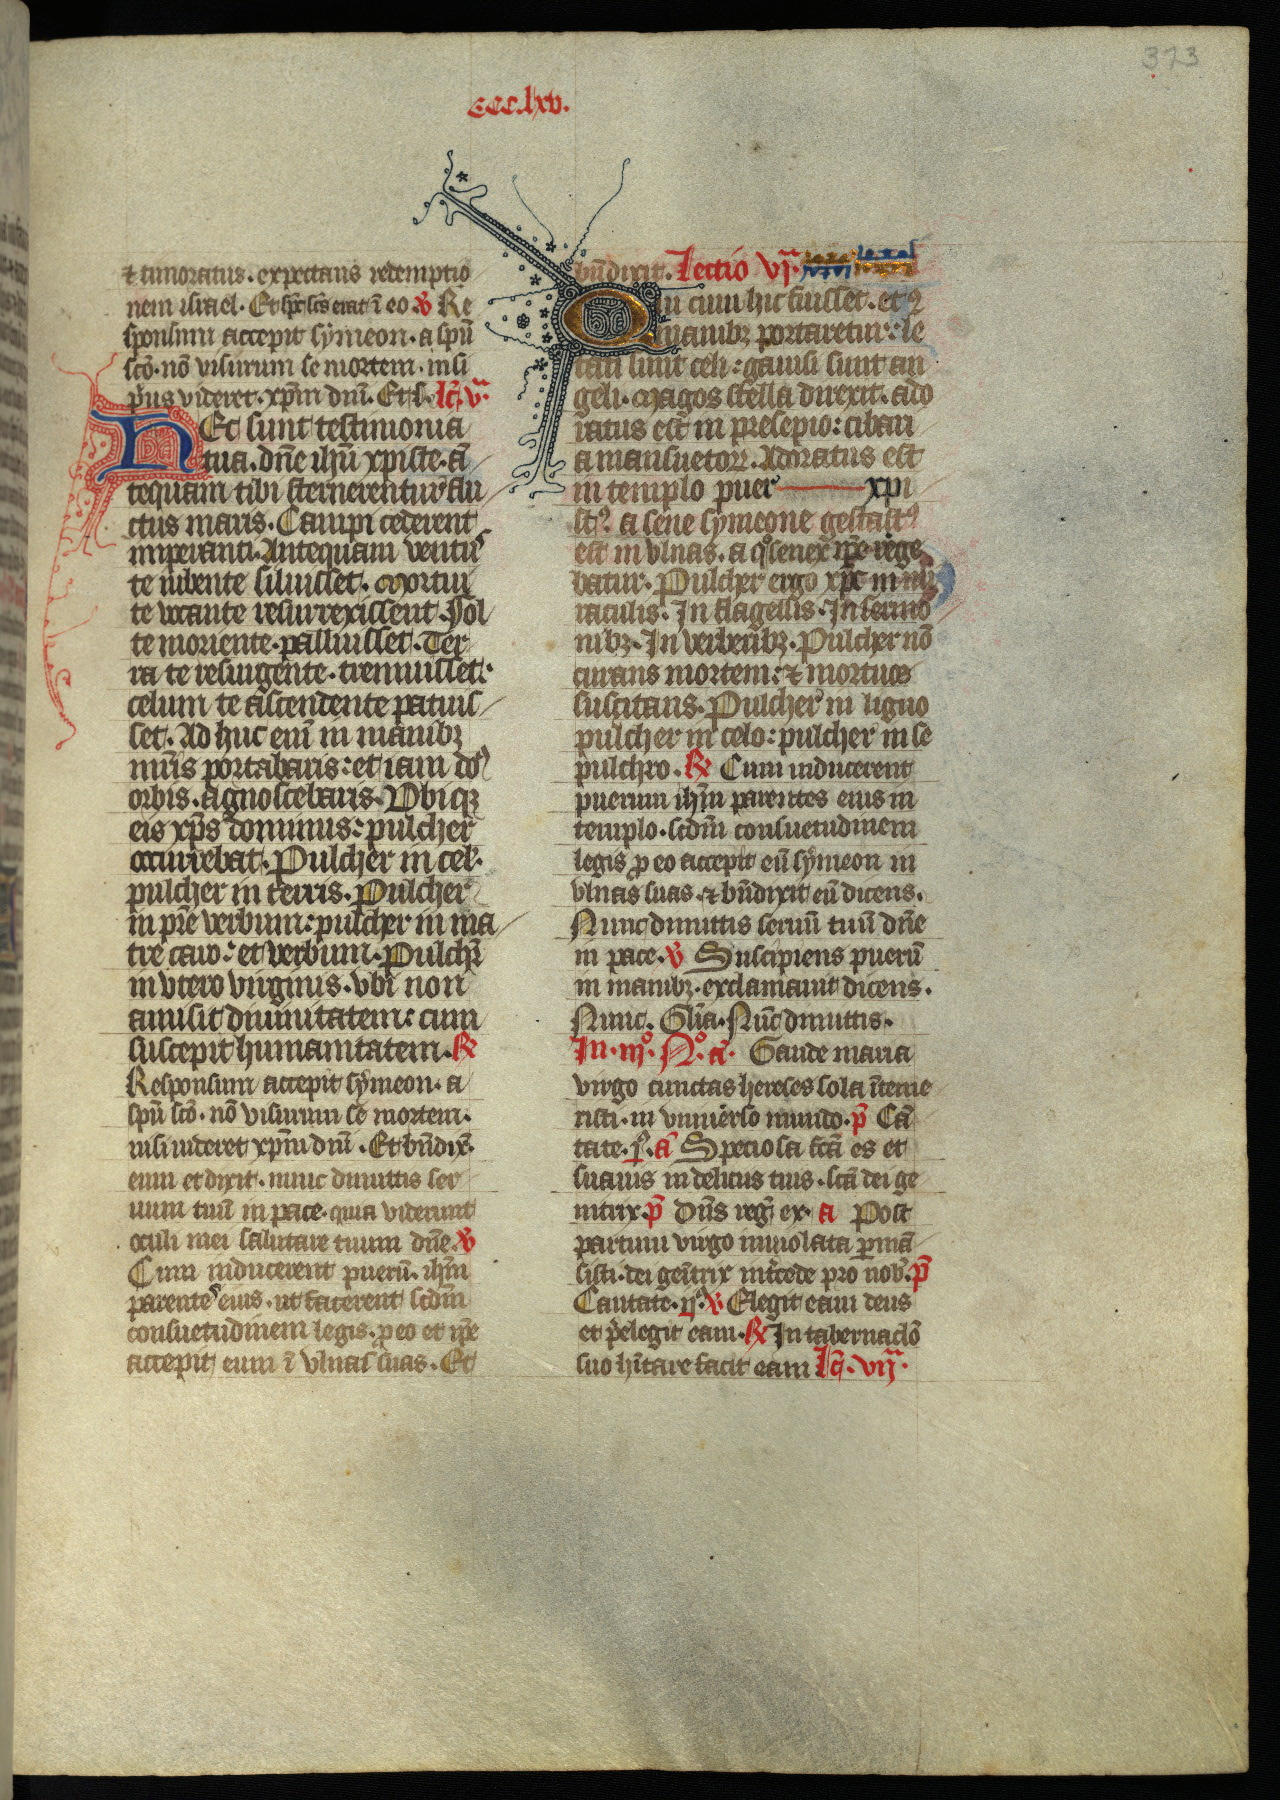 373
CCC.lxv.
⁊ timoratus. expectans redemptio
nem israel. Et sps̄ scs̄ erat ī eo. v̄ Re
sponsum accepit symeon. a spū
scō. nō visurum se mortem. nisi
prius videret. xpm̄ dnm̄. Et b. lc̄. v̄ᵃ
HEc sunt testimonia
tua. dn̄e ihū xpiste. ā
tequam tibi sternerentur flu
ctus maris. Campi cederent
imperanti. Antequam ventus
te iubente siluisset. mortui
te vocante resurrexissent. Sol
te moriente. palluisset. Ter
ra te resurgente. tremuisset.
celum te ascendente patuis
set. Ad huc enī in manibꝫ
mr̄is portabaris: et iam dn̄s
orbis. agnoscebaris. Vbicꝫ
eis xp̄s dominus: pulcher
occurrebat. Pulcher in cel'.
pulcher in terris. Pulcher
in pr̄e verbum: pulcher in ma
tre caro: et verbum. Pulchr̄
in vtero virginis. vbi non
amisit diuinitatem: cum
suscepit humanitatem. ℟
Responsum accepit symeon. a
spū scō. nō visurum se mortem.
nisi uideret xpm̄ dnī. Et bn̄dix̄.
eum et dixit. nunc dimittis ser
uum tuū in pace. quia viderunt
oculi mei salutare tuum dn̄e. v̄
Cum inducerent puerū. ihm̄
parentes eius. ut facerent scdm̄
consuetudinem legis. p eo et ip̄e
accepit eum ī vlnas suas. Et
bn̄dixit. Lectio vjᵃ.
Qui cum hic fuisset. et ī
manibꝫ portaretur: le
tati sunt celi: gauisi sunt an
geli. Magos stella direxit. ado
ratus est in presepio: cibari
a mansuetorꝝ. Adoratus est
in templo puer xpi
stꝰ. a sene symeone gestatꝰ
est in vlnas. a qͦ senex ip̄e rege
batur. Pulcher ergo xp̄c in mi
raculis. In flagellis. In sermo
nibꝫ. In verberibꝫ. Pulcher nō
curans mortem: ⁊ mortuos
suscitans. Pulcher in ligno
pulcher in celo: pulcher in se
pulchro. ℟ Cum inducerent
puerum ihm̄ parentes eius in
templo. scdm̄ consuetudinem
legis p eo accepit eū symeon in
vlnas suas. ⁊ bn̄dixit eū dicens.
Nunc dimittis seruū tuū dn̄e
in pace. v̄ Suscipiens puerū
in manibꝫ. exclamauit dicens.
Nunc. Glīa. Nūc dimittis.
In. iijͦ. Nͦ. a. Gaude maria
virgo cunctas hereses sola īteme
risti. in vniuerso mundo. p̄ Cā
tate. jͦ. ā Speciosa fcā es et
suauis in deliciis tuis. scā dei ge
nitrix. p̄ Dn̄s reḡ ex. a Post
partum virgo inuiolata pmā
sisti. dei genitrix int̄cede pro nob̄. p̄
Cantate. ijͦ. v̄ Elegit eam deus
et pelegit eam. ℟ In tabernaclō
suo hītare facit eam Lc̄. vijᵃ.